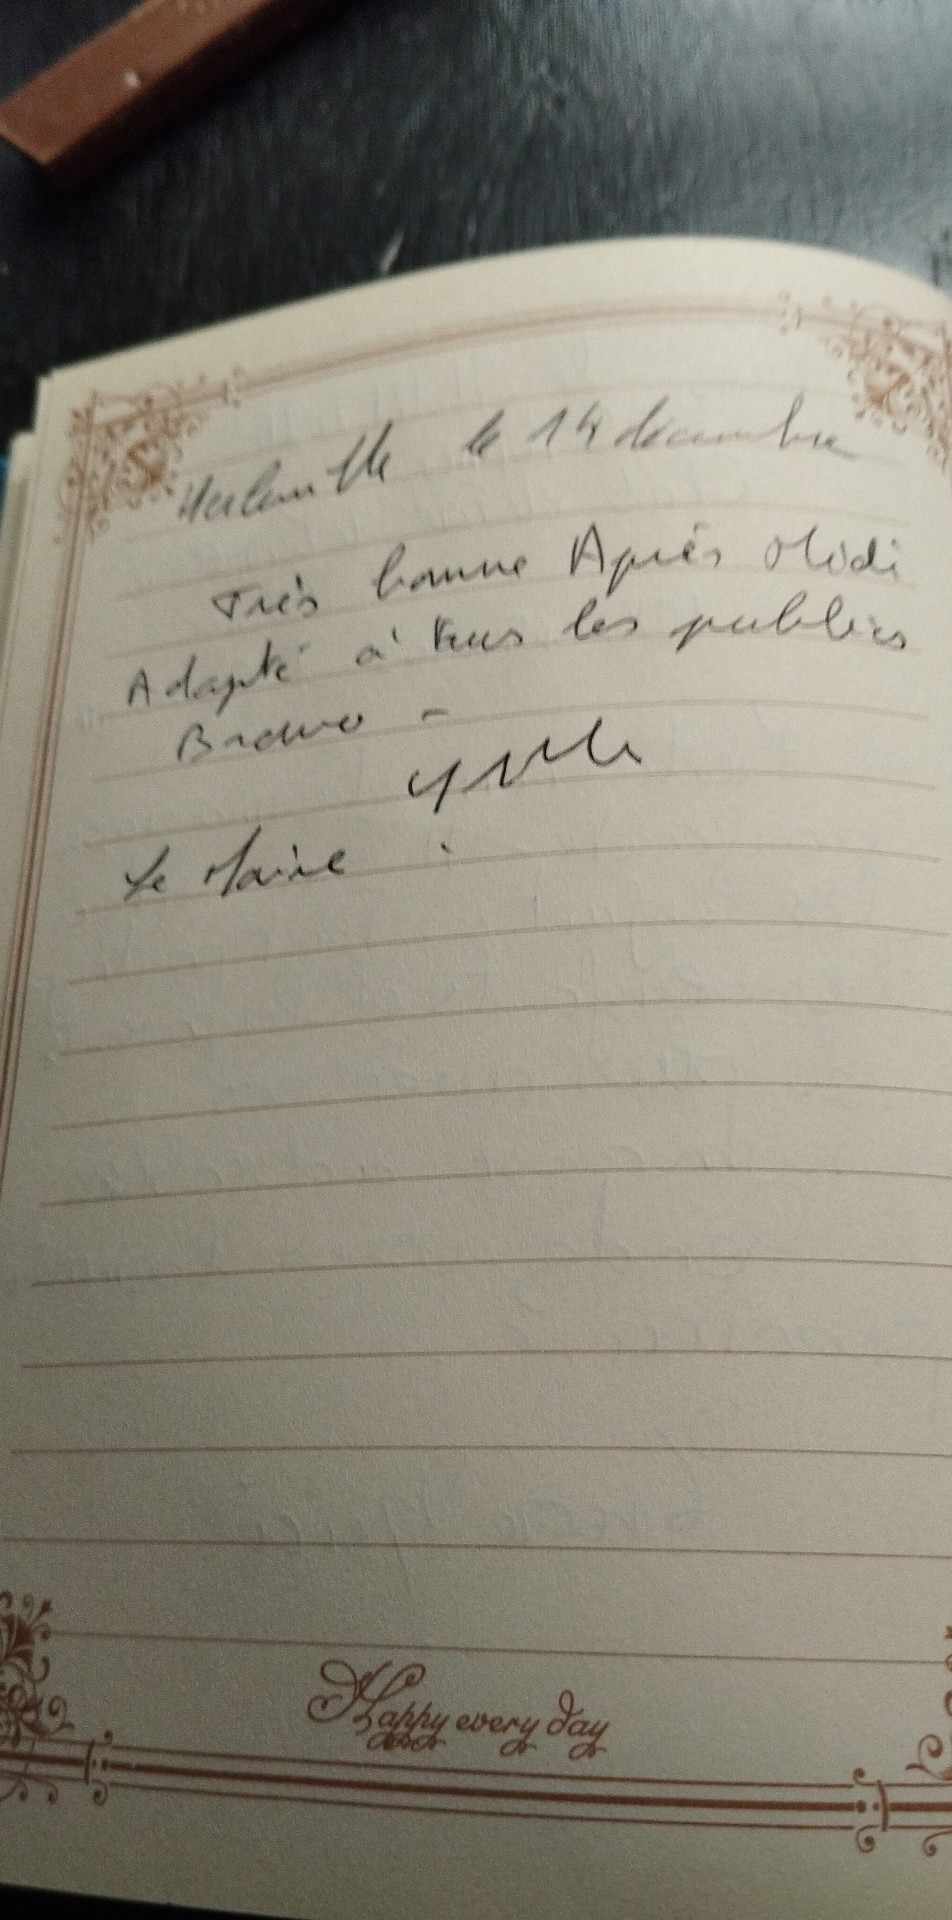 le 14 décembre
Très bonne Après Midi
Adapté à tous les publics
Bravo -
Le Maire :
Happy every day